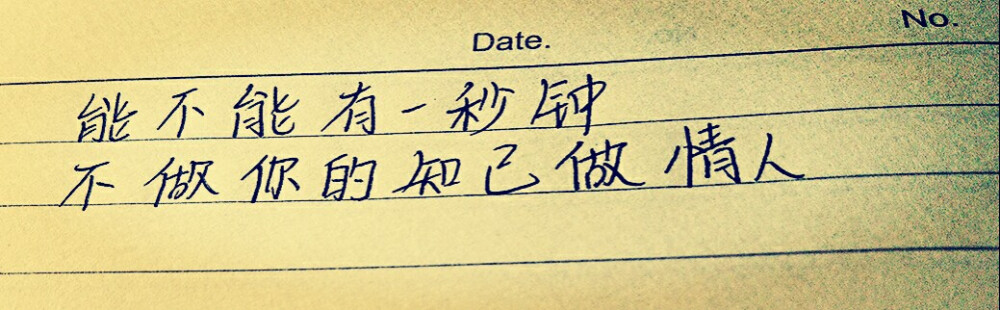 No.
Date.
能不能有一秒钟
不做你的知己做情人